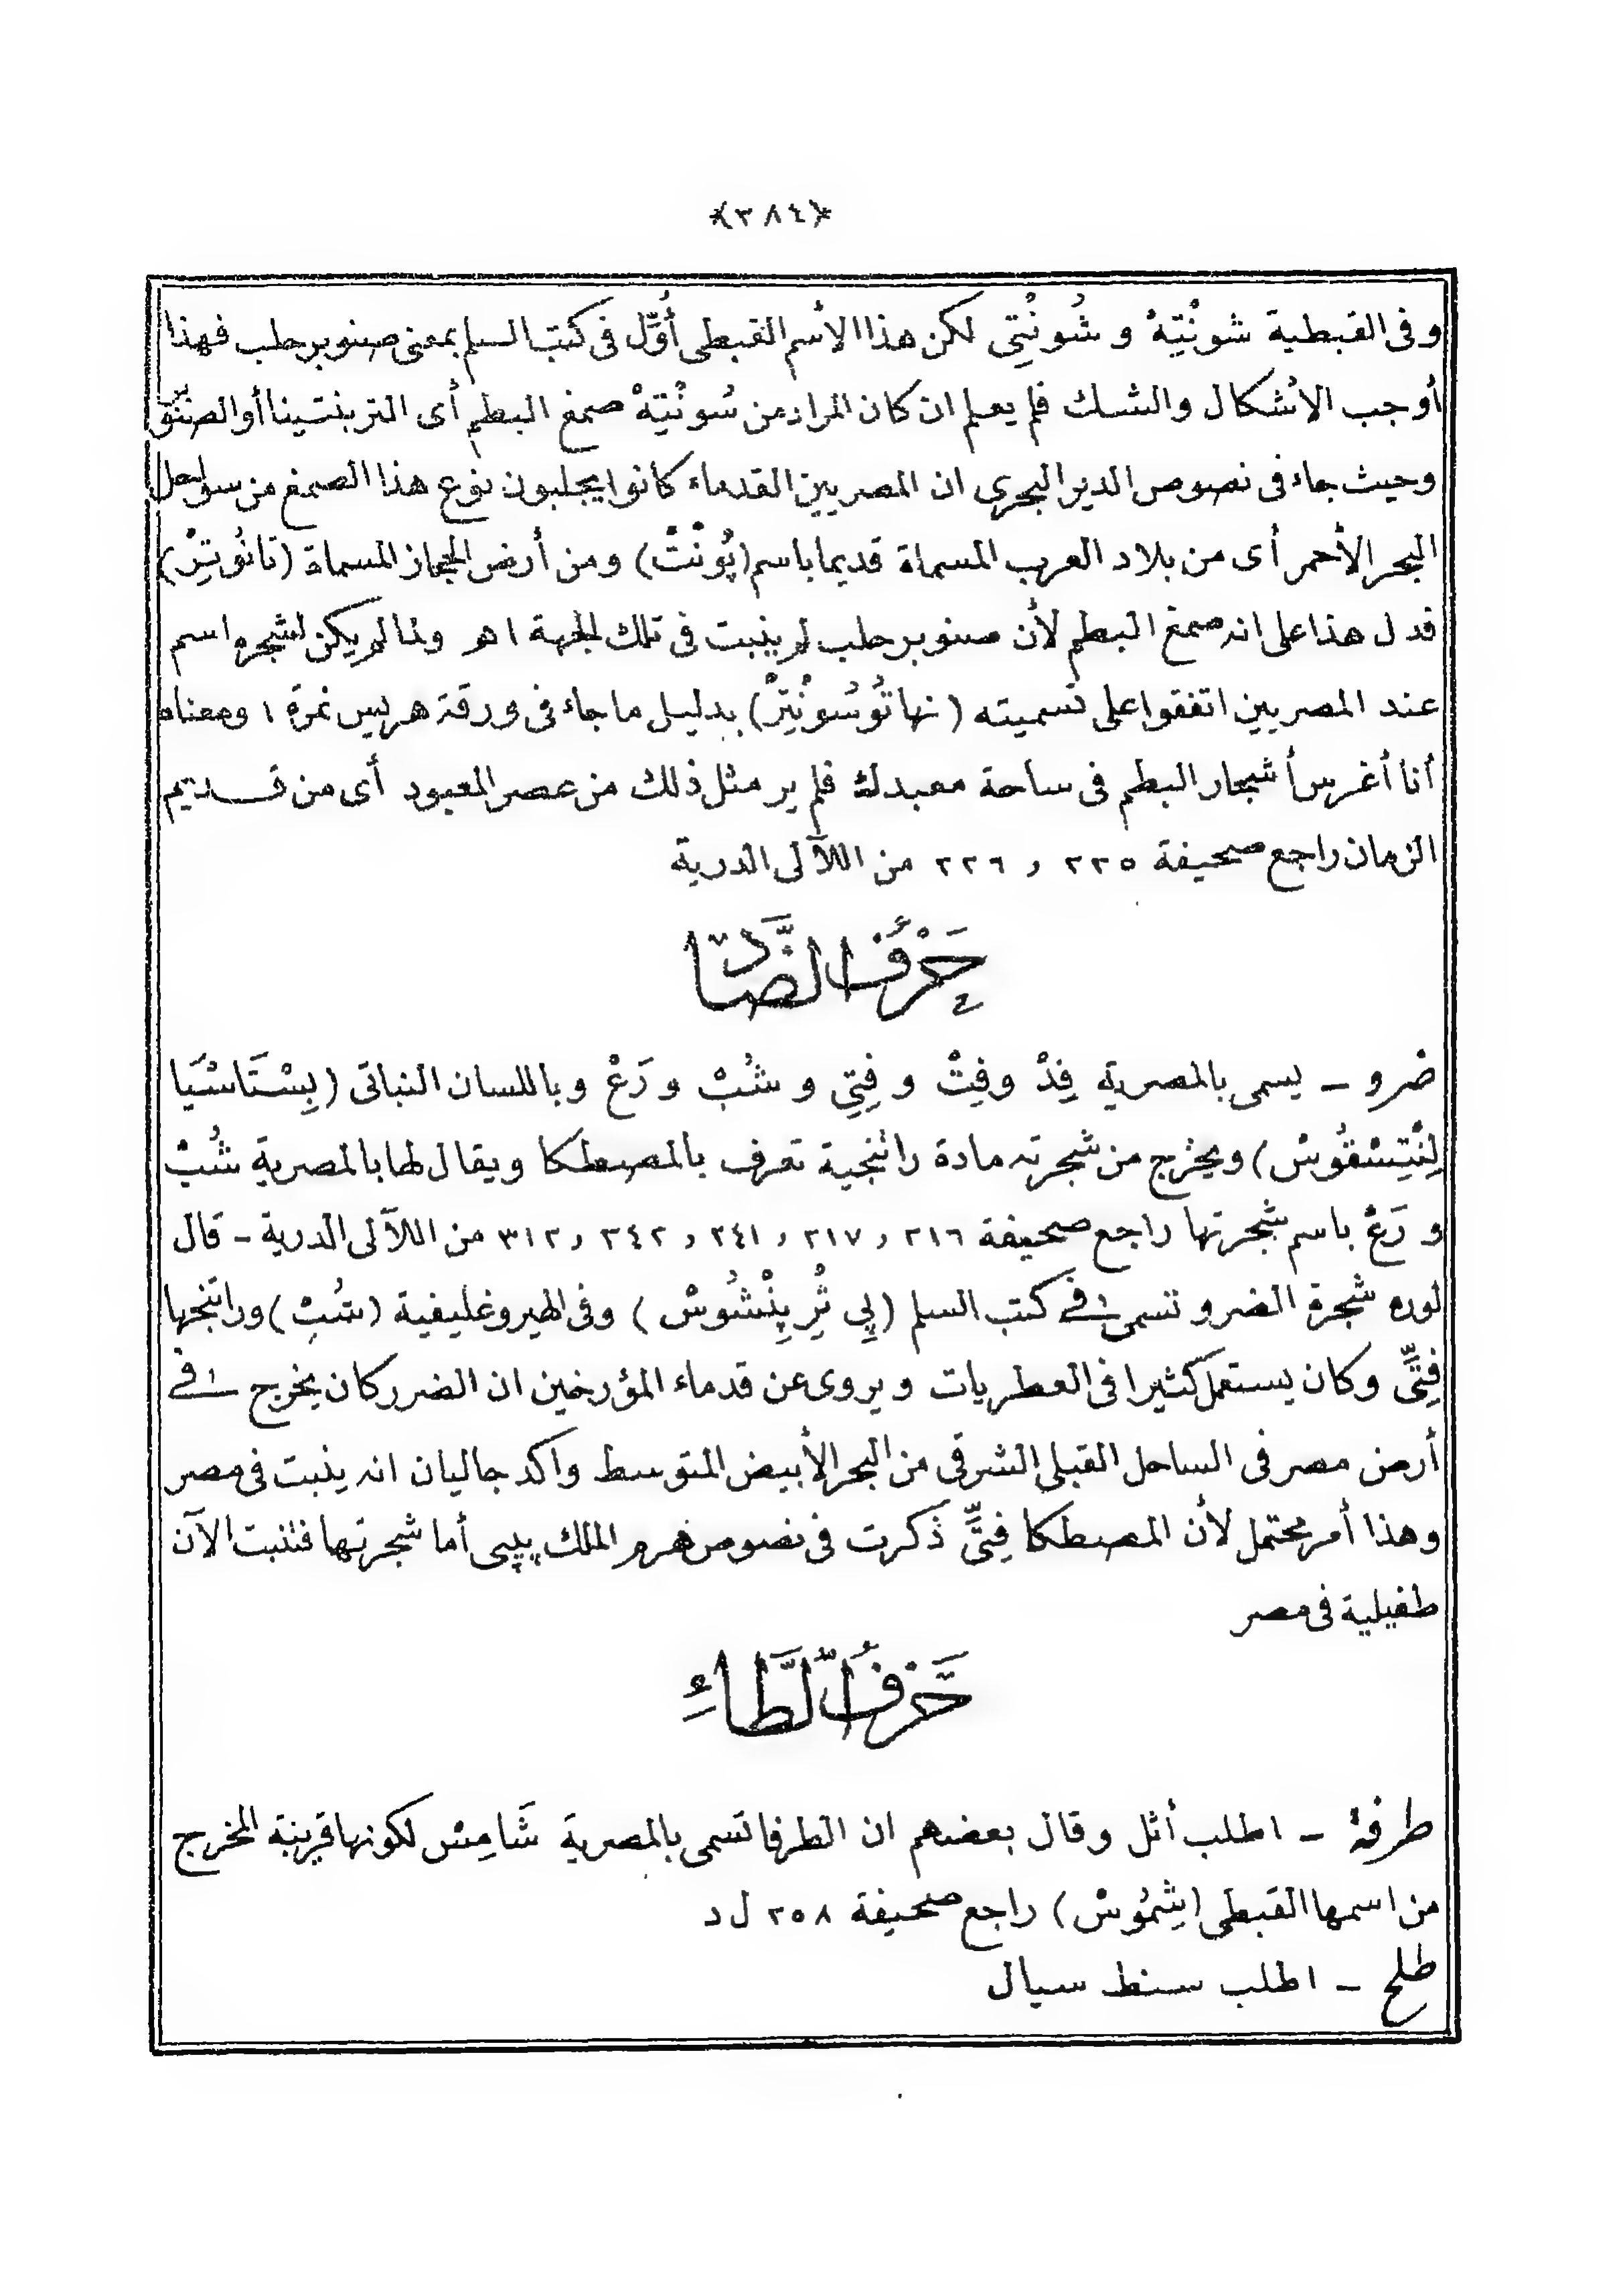 ﴿٣٨٤﴾
وفى القبطية شونْتِهْ و شُونْتِى لكن هذا الأسم القبطى أُوِّل فى كتب السلم بمعنى صنوبر حلب فهذا
أوجب الأشكال والشك فلم يعلم ان كان المراد من سُونْتِهْ صمغ البطم أى التربنتينا أو الصنوبر
وحيث جاء فى نصوص الدير البحرى ان المصريين القدماء كانوا يجلبون نوع هذا الصمغ من سواحل
البحر الأحمر أى من بلاد العرب المسماة قديما باسم (پُونْتْ) ومن أرض الحجاز المسماة (تانُوتِرْ)
فدل هذا على انه صمغ البطم لأن صنوبر حلب لم ينبت فى تلك الجهة اهـ ولما لم يكن لشجره اسم
عند المصريين اتفقوا على تسميته (نهاتُوسُونْتِرْ) بدليل ما جاء فى ورقة هريس نمرة ١ ومعناه
أنا أغرس أشجار البطم فى ساحة معبدك فلم ير مثل ذلك من عصر المعبود أى من قديم
الزمان راجع صحيفة ٢٢٥ و ٢٢٦ من اللآلى الدرية
حَرْفُ الضَّادِ
ضرو – يسمى بالمصرية فِدْ وفِتْ و فِتِى و شُبْ و رَعْ وباللسان النباتى (بِسْتَاسْيَا
لِنْتِسْقُوسْ) ويخرج من شجرته مادة راتنجية تعرف بالمصطكا ويقال لها بالمصرية شُبْ
و رَعْ باسم شجرتها راجع صحيفة ٢١٦ و ٢١٧ و ٢٤١ و ٢٤٢ و ٣١٢ من اللآلى الدرية – قال
لوره شجرة الضرو تسمى فى كتب السلم (پِى ثْرِ پِنْشُوسْ) وفى الهيروغليفية (شُبْ) وراتنجها
فِتِّى وكان يستعمل كثيرا فى العطريات ويروى عن قدماء المؤرخين ان الضرر كان يخرج فى
أرض مصر فى الساحل القبلى الشرقى من البحر الأبيض المتوسط وأكد جاليان انه ينبت فى مصر
وهذا أمر محتمل لأن المصطكا فِتِّى ذكرت فى نصوص هرم الملك پيپى أما شجرتها فتنبت الآن
طفيلية فى مصر
حَرْفُ الطَّاءِ
طرفة – اطلب أثل وقال بعضهم ان الطرفا تسمى بالمصرية شَامِسْ لكونها قريبة المخرج
من اسمها القبطى (شِمُوسْ) راجع صحيفة ٢٥٨ ل د
طلح – اطلب سنط سيال